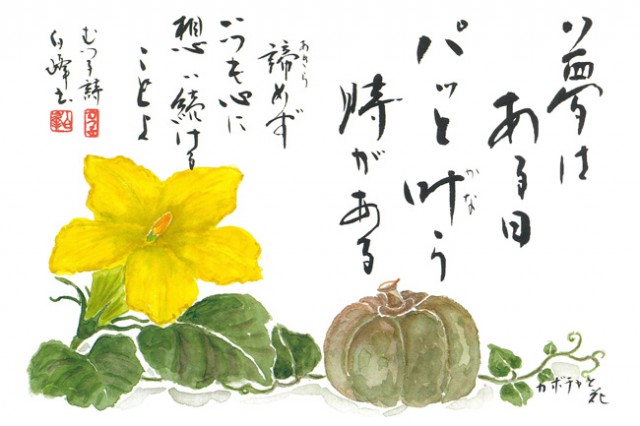 夢は
ある日
パッと叶う
かな
時がある
あきら
諦めず
いつも心に
想い続ける
ことよ
むつ子詩
白峰書
カボチャと
花